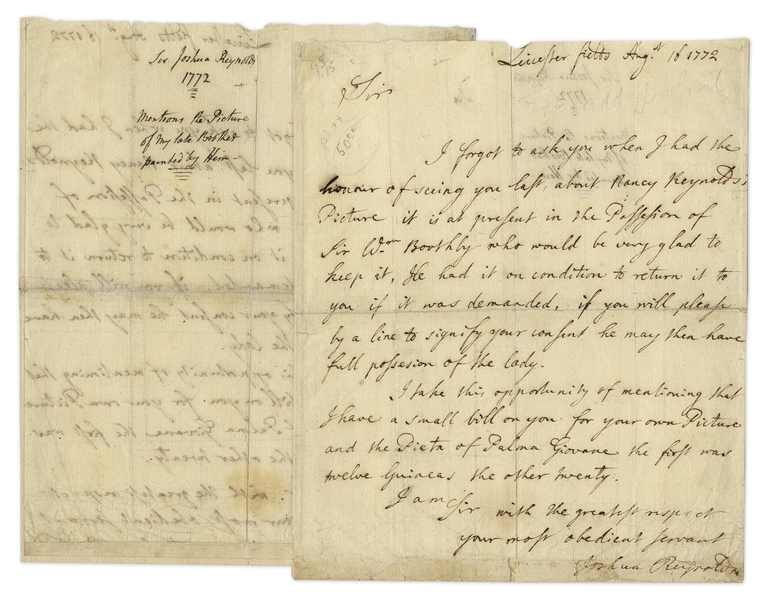 Sir Joshua Reynolds
1772
Mentions the Picture
of My late Brother
painted by Him
Leicester fields Augst. 18 1772
Sir
5000
I forgot to ask you when I had the
honour of seeing you last, about Nancy Reynolds's
Picture it is at present in the Possesion of
Sir Wm Boothby who would be very glad to
keep it, He had it on condition to return it to
you if it was demanded, if you will please
by a line to signify your consent he may then have
full possesion of the lady.
I take this opportunity of mentioning that
I have a small bill on you for your own Picture
and the Pieta of Palma Giovane the first was
twelve Guineas the other twenty.
I am Sir with the greatest respect
your most obedient servant
Joshua Reynolds